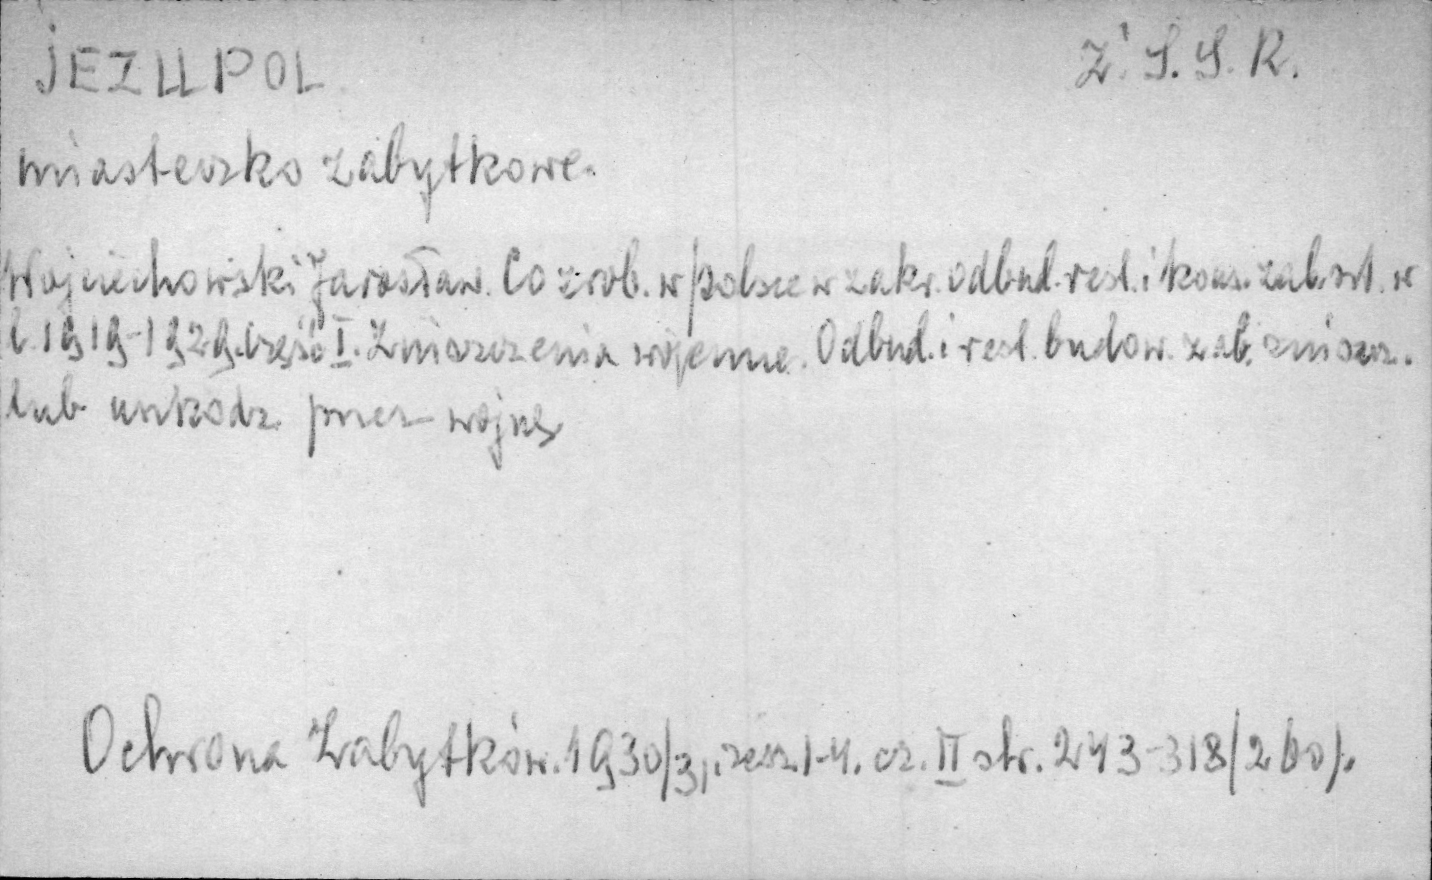 JEZUPOL Z.S.S.R.
miasteczko zabytkowe.
Wojciechowski Jarosław. Co zrob. w Polsce w zakr. odbud. rest. i kons. zab. szt. w
l. 1919-1929. Część I. Zniszczenia wojenne. Odbud. i rest. budow. zab. zniszcz.
lub uszkodz. przez wojnę
Ochrona Zabytków. 1930/31, zesz. 1-4. cz. II str. 243-318/260/.